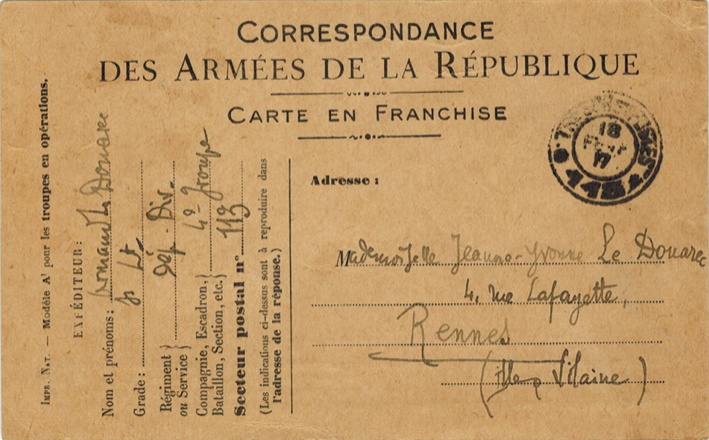 CORRESPONDANCE
DES ARMÉES DE LA RÉPUBLIQUE
CARTE EN FRANCHISE
IMPR. NAT. — Modèle A¹ pour les troupes en opérations.
EXPÉDITEUR:
Nom et prénoms: Le Douarec
Grade: Lt
Régiment
ou Service } Div.
Compagnie, Escadron,
Bataillon, Section, etc. } 4e groupe
Secteur postal n° 113
(Les indications ci-dessus sont à reproduire dans
l'adresse de la réponse.)
18
17
Adresse :
Mademoiselle Jeanne-Yvonne Le Douarec
4, rue Lafayette,
Rennes
(Ille & Vilaine)